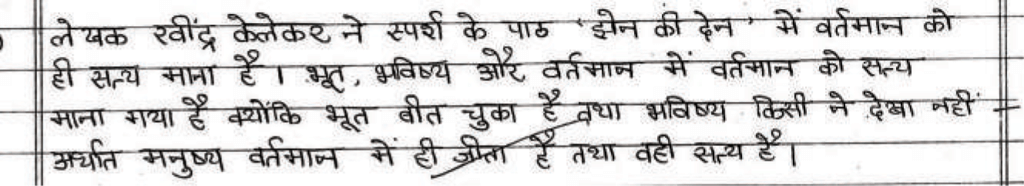 लेखक रवींद्र केलेकर ने स्पर्श के पाठ 'झेन की देन' में वर्तमान को
ही सत्य माना है । भूत, भविष्य और वर्तमान में वर्तमान को सत्य
माना गया है क्योंकि भूत बीत चुका है तथा भविष्य किसी ने देखा नहीं -
अर्थात मनुष्य वर्तमान में ही जीता है तथा वही सत्य है ।